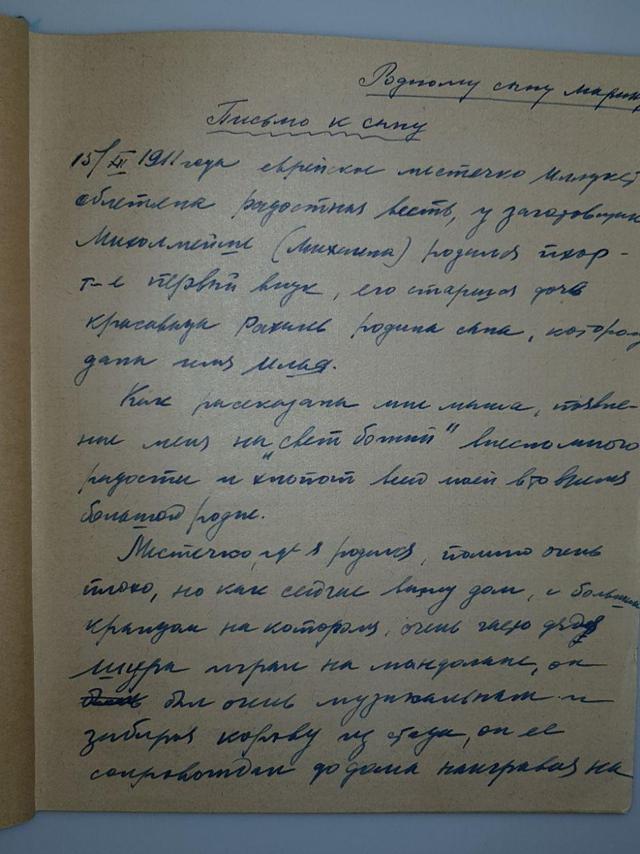 Родному сыну
Письмо к сыну
15/XII 1911 года еврейское местечко
облетела радостная весть, у
(Михаила) родился
т-е первый внук, его старшая дочь
красавица Рахиль родила сына,
дали имя Илья.
Как рассказала мне мама, появле-
ние меня на "свет божий" внесло много
радости и хлопот всей моей в то время
большой родне.
Местечко, где я родился, помню очень
плохо, но как сейчас вижу дом, с
крыльцом на котором, очень часто дядя
Шура играл на мандолине, он
был очень музыкальным и
забирая корову из стада, он ее
сопровождал до дома наигрывая на